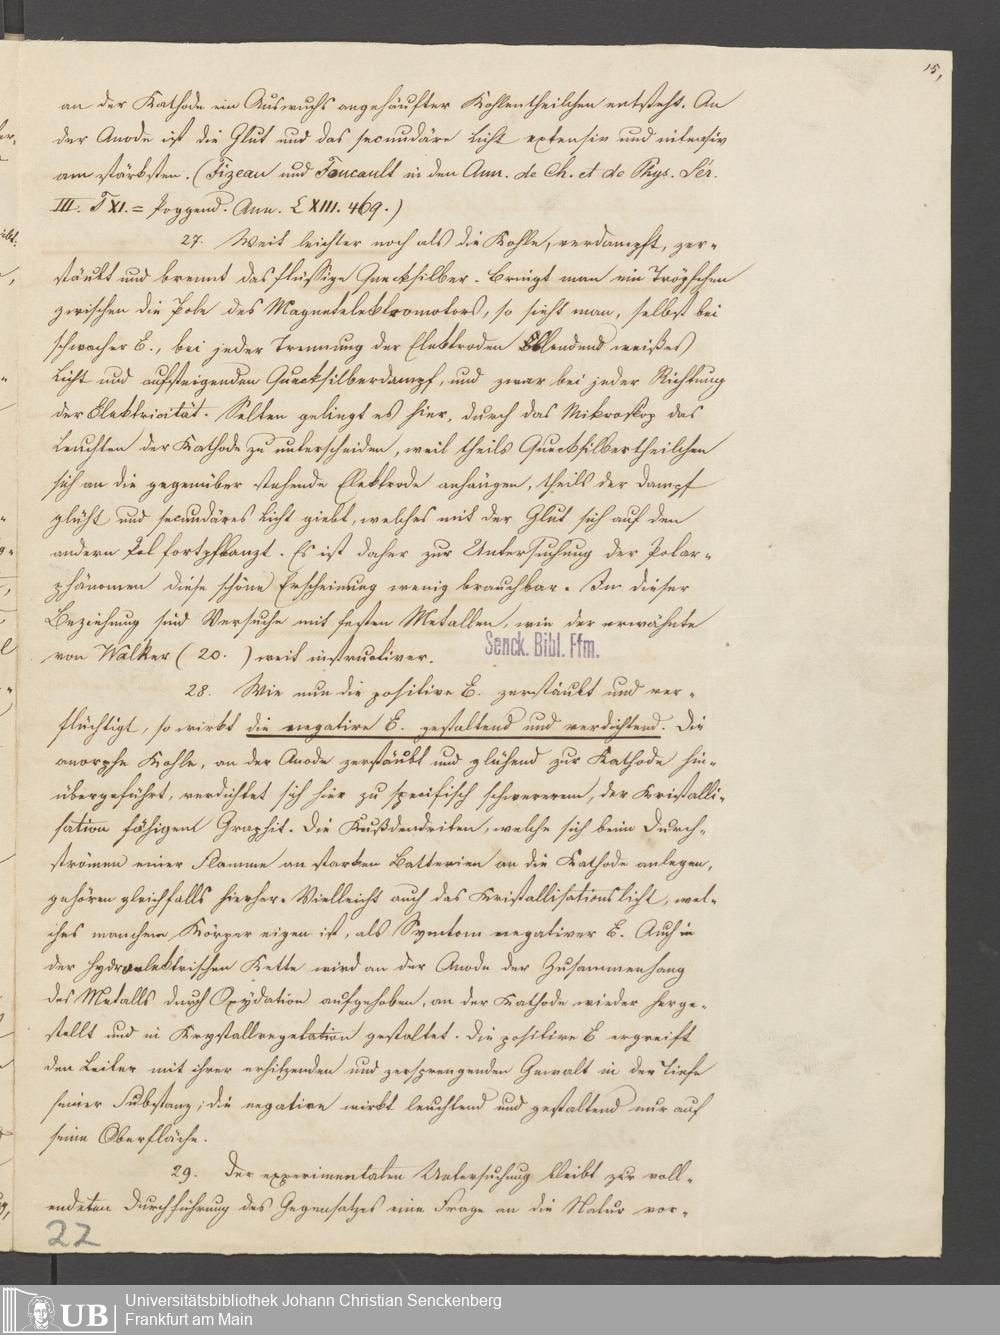 15,
an der Kathode ein Auswuchs angehäufter Kohlentheilchen entsteht. An
der Anode ist die Glut und das secundäre Licht extensiv und intensiv
am stärksten. (Fizeau und Foucault in den Ann. de Ch. et de Phys. Sér.
III. T XI. = Poggend. Ann. LXIII. 469.)
27. Weit leichter noch als die Kohle, verdampft, zer-
stäubt und brennt das flüssige Quecksilber. Bringt man ein Tröpfchen
zwischen die Pole des Magnetelektromotors, so sieht man, selbst bei
schwacher E., bei jeder Trennung der Elektroden blendend weißes
Licht und aufsteigenden Quecksilberdampf, und zwar bei jeder Richtung
der Elektricität. Selten gelingt es hier, durch das Mikroskop das
Leuchten der Kathode zu unterscheiden, weil theils Quecksilbertheilchen
sich an die gegenüber stehende Elektrode anhängen, theils der Dampf
glüht und secundäres Licht giebt, welches mit der Glut sich auf den
andern Pol fortpflanzt. Es ist daher zur Untersuchung der Polar-
phänomen diese schöne Erscheinung wenig brauchbar. In dieser
Beziehung sind Versuche mit festen Metallen, wie der erwähnte
von Walker (20.) weit instructiver.
Senck. Bibl. Ffm.
28. Wie nun die positive E. zerstäubt und ver-
flüchtigt, so wirkt die negative E. gestaltend und verdichtend. Die
amorphe Kohle, an der Anode zerstäubt und glühend zur Kathode hin-
übergeführt, verdichtet sich hier zu specifisch schwererem, der Kristalli-
sation fähigem Graphit. Die Rußdendriten, welche sich beim Durch-
strömen einer Flamme an starken Batterien an die Kathode anlegen,
gehören gleichfalls hierher. Vielleicht auch das Kristallisationslicht, wel-
ches manchem Körper eigen ist, als Symtom negativer E. Auch in
der hydroelektrischen Kette wird an der Anode der Zusammenhang
des Metalls durch Oxydation aufgehoben, an der Kathode wieder herge-
stellt und in Krystallvegetation gestaltet. Die positive E ergreift
den Leiter mit ihrer erhitzenden und zersprengenden Gewalt in der Tiefe
seiner Substanz; die negative wirkt leuchtend und gestaltend nur auf
seine Oberfläche.
29. Der experimentalen Untersuchung bleibt zur voll-
endeten Durchführung des Gegensatzes eine Frage an die Natur vor-
22
UB
Universitätsbibliothek Johann Christian Senckenberg
Frankfurt am Main